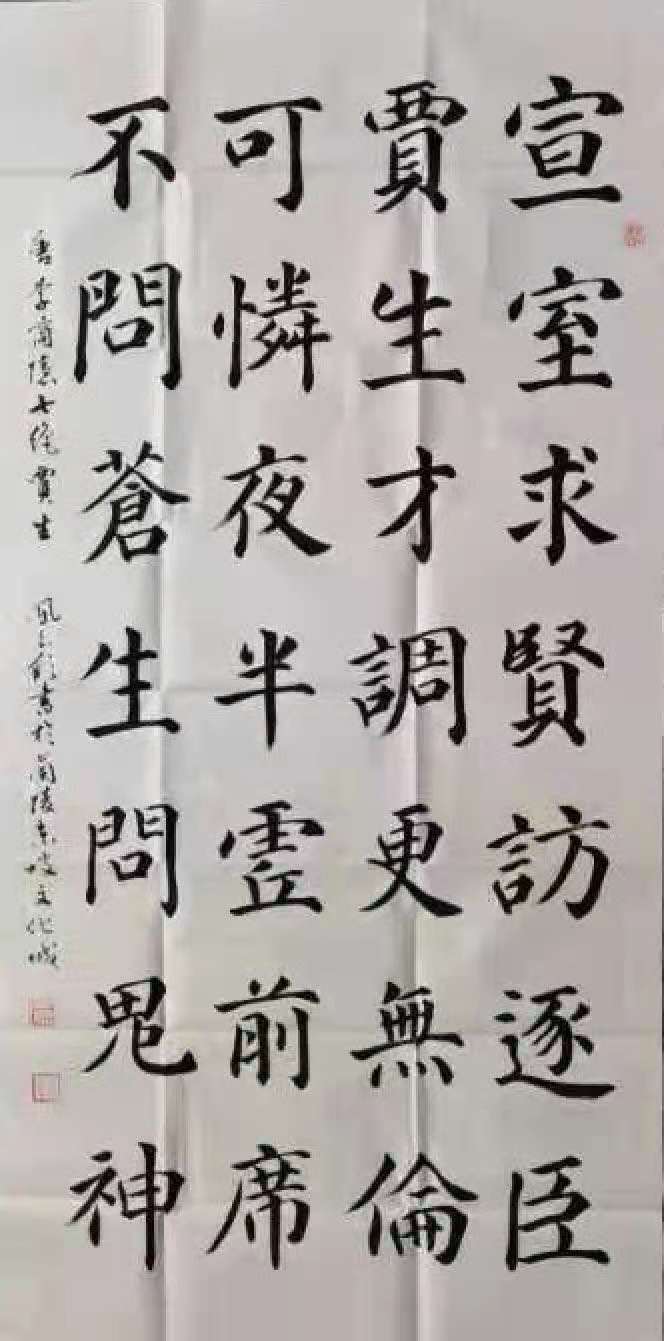 宣室求賢訪逐臣
賈生才調更無倫
可憐夜半虛前席
不問蒼生問鬼神
唐李商隱七絕賈生 書於蘭陵東坡文化城